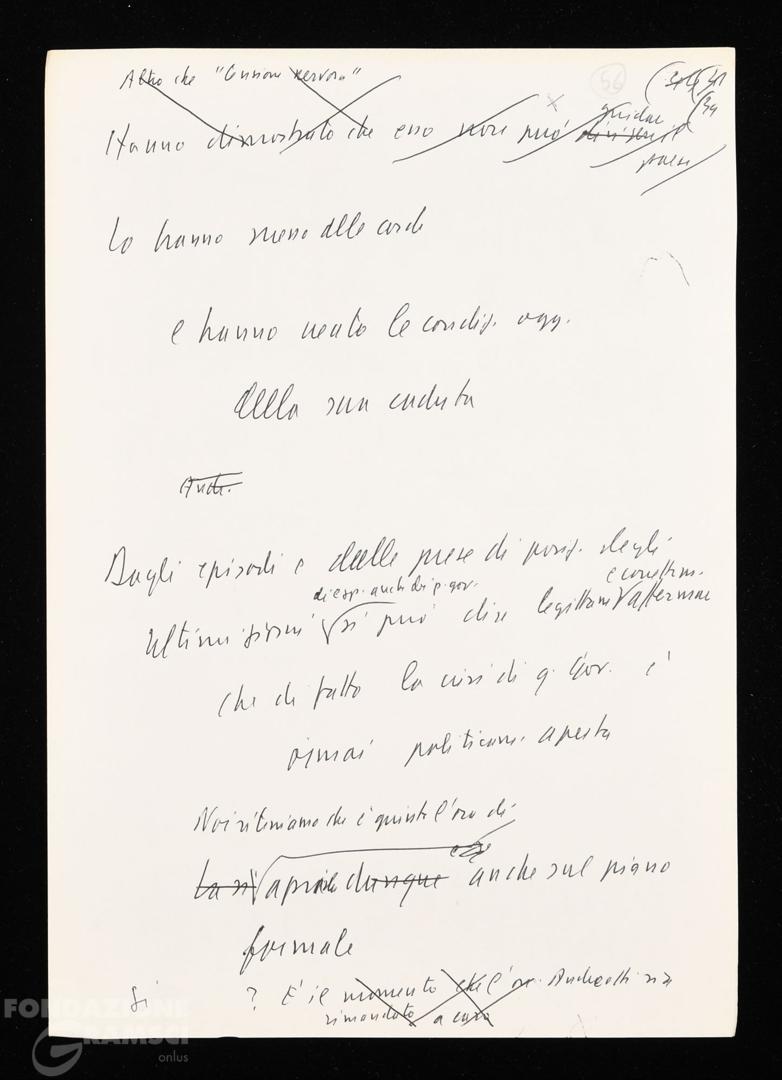 Altro che "tensione nervosa"
56
Hanno dimostrato che esso non può guidare il
paese
Lo hanno messo alle corde
e hanno creato le condiz. ogg.
della sua caduta
Anch.
Dagli episodi e dalle prese di posiz. degli
di esp. anche di p. gov.
e correttam.
ultimi giorni si può dire legittam affermare
che di fatto la crisi di q. Gov. è
ormai politicam. aperta
Noi riteniamo che è giunta l'ora di
La si aprirla dunque anche sul piano
formale
Si ? E' il momento che l'on. Andreotti sia
rimandato a casa
FONDAZIONE
GRAMSCI
onlus